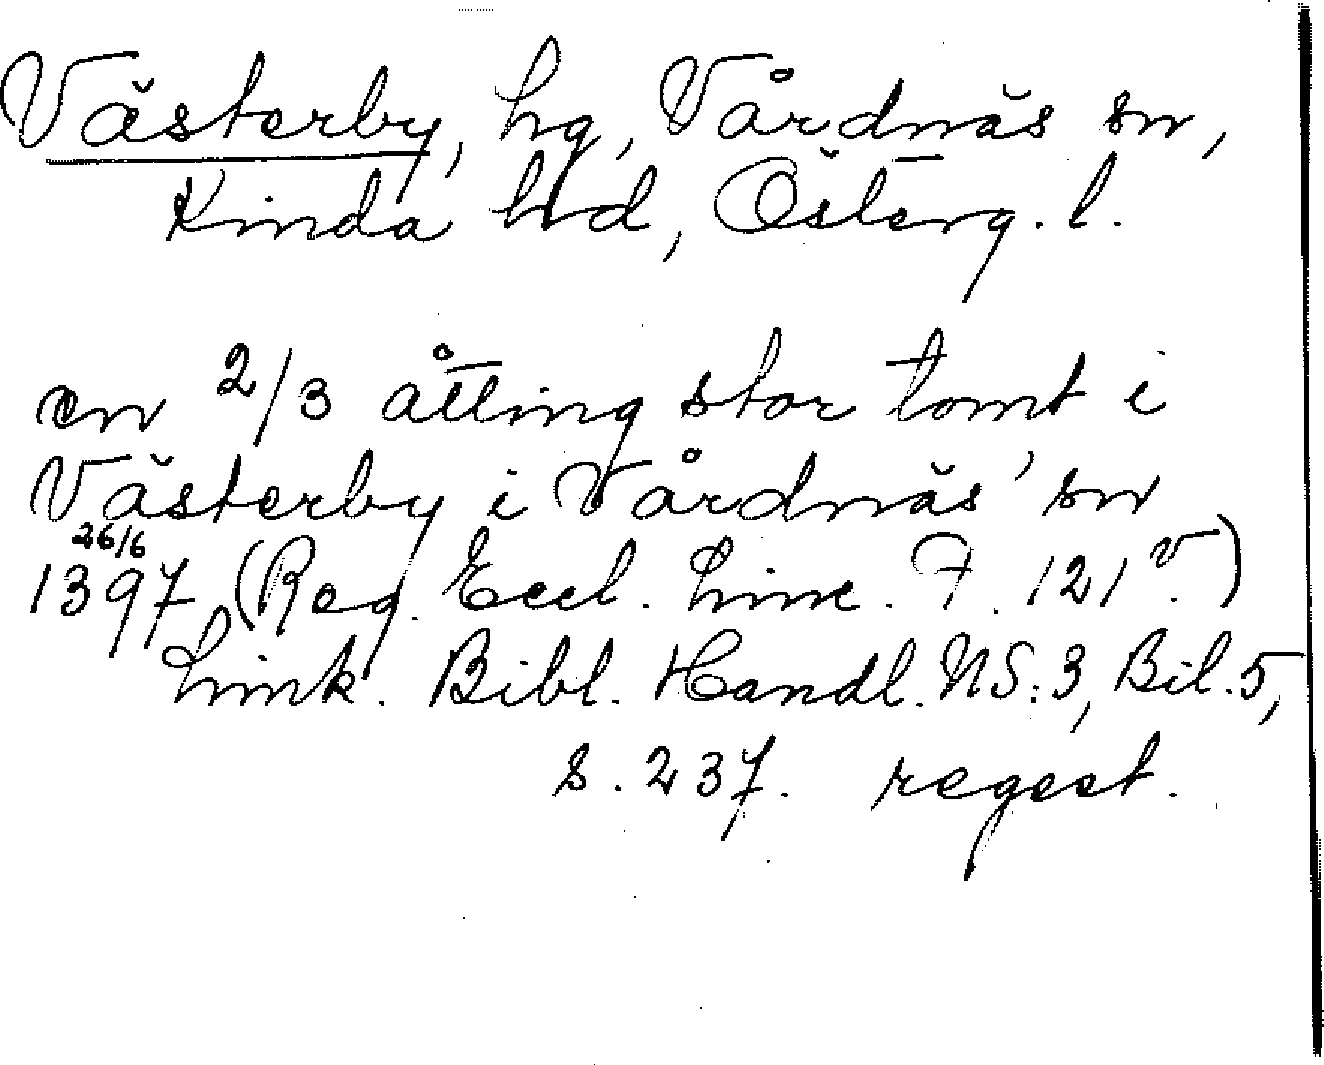 Västerby, hg, Vårdnäs sn,
Kinda hd, Österg. l.
en 2/3 åtting stor tomt i
Västerby i Vårdnäs' sn
26/6
1397 (Reg. Eccl. Linc. F. 121 v.)
Link. Bibl. Handl. NS:3, Bil.5,
s. 237. regest.